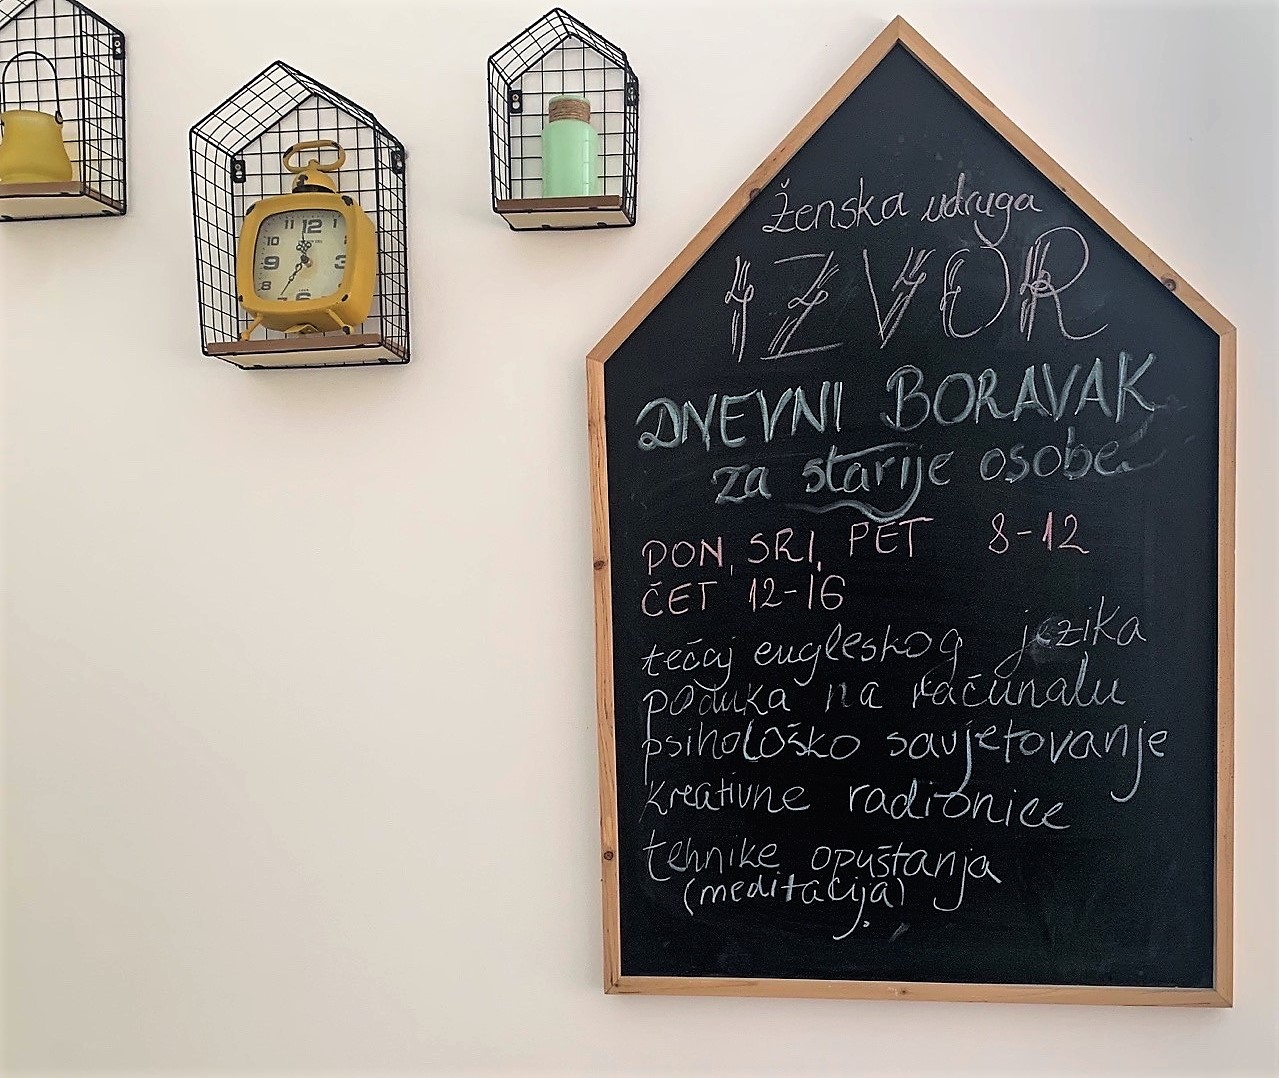 Ženska udruga
IZVOR
DNEVNI BORAVAK
za starije osobe
PON, SRI, PET 8-12
ČET 12-16
tečaj engleskog jezika
poduka na računalu
psihološko savjetovanje
kreativne radionice
tehnike opuštanja
(meditacija)
11 12 1
10
9 3
8
7 6